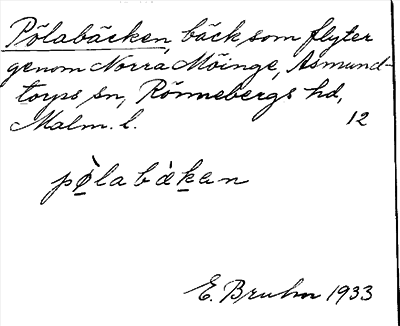 Pölabäcken, bäck som flyter
genom Norra Möinge, Asmund-
torps sn, Rönnebergs hd,
Malm. l. 12
pø̀labàkan
E. Bruhn 1933